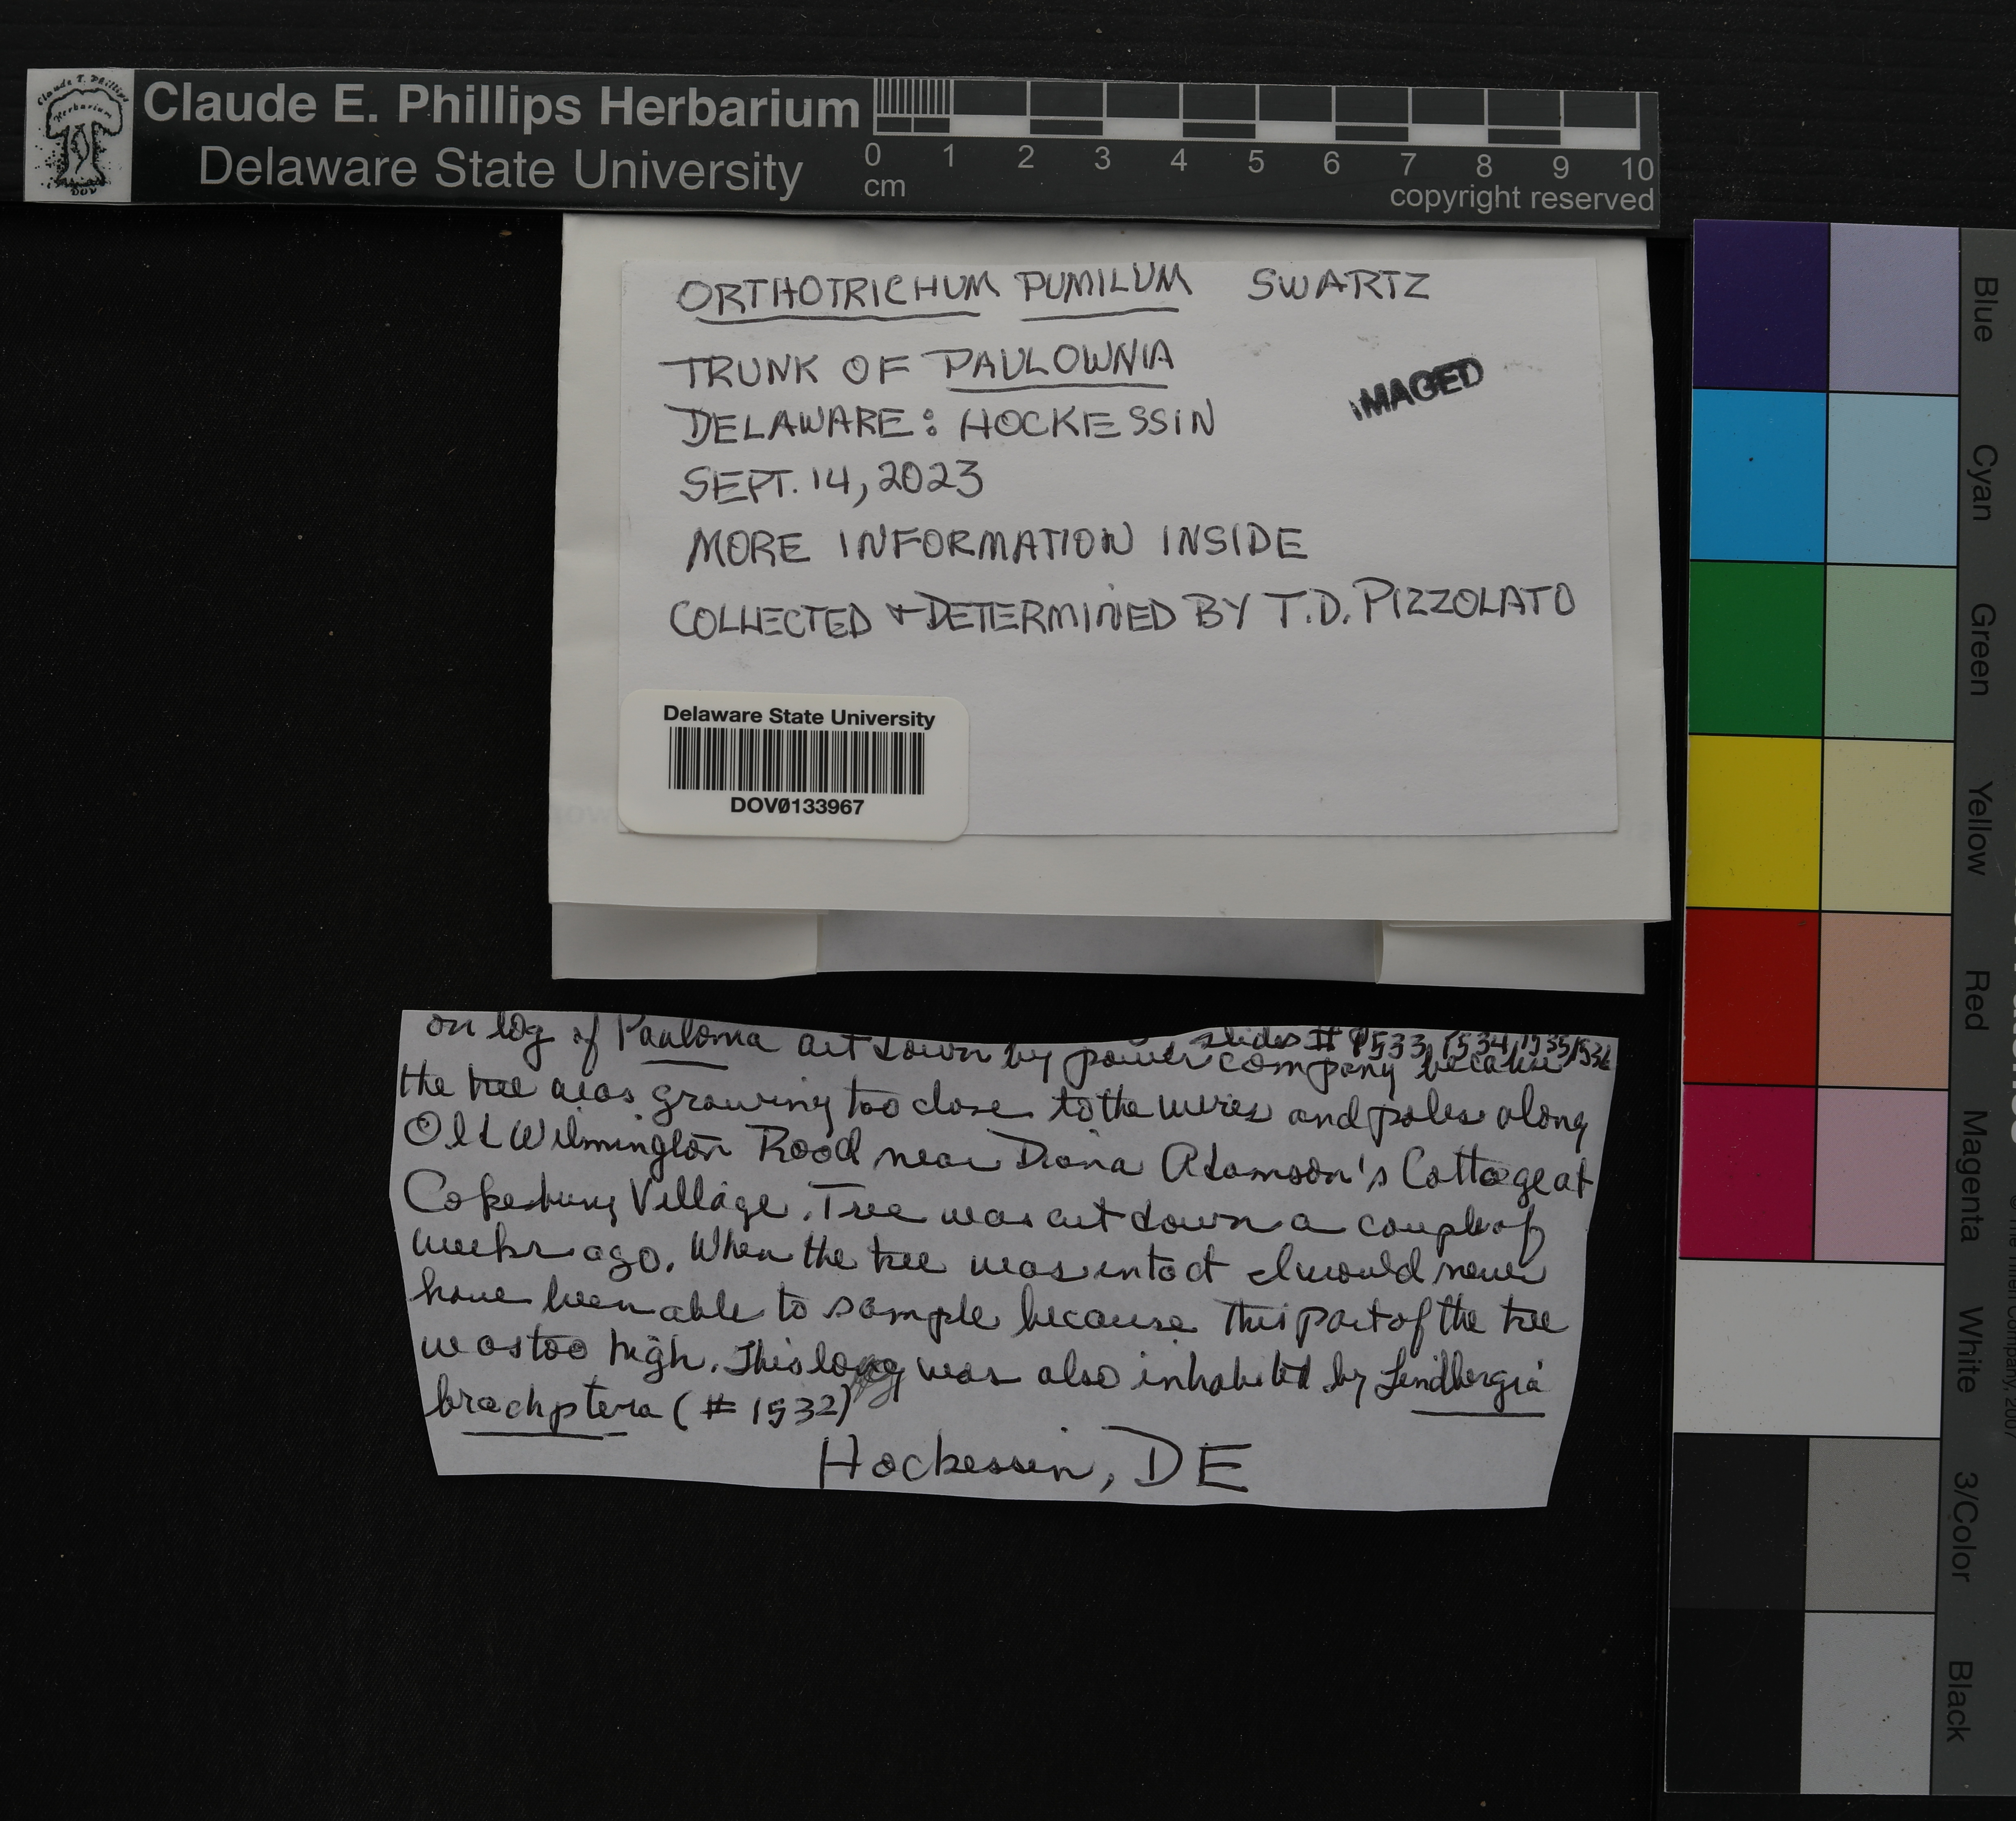 Claude E. Phillips Herbarium
Delaware State University
0 1 2 3 4 5 6 7 8 9 10
cm
copyright reserved
ORTHOTRICHUM PUMILUM SWARTZ
TRUNK OF PAULOWNIA
IMAGED
DELAWARE: HOCKESSIN
SEPT. 14, 2023
MORE INFORMATION INSIDE
COLLECTED + DETERMINED BY T.D. PIZZOLATO
Delaware State University
DOV0133967
slides # 1533, 1534, 1535, 1536
on log of Paulonia cut down by power company because
the tree was growing too close to the wires and poles along
Old Wilmington Road near Diana Adamson's Cottage at
Cokesbury Village. Tree was cut down a couple of
weeks ago. When the tree was intact I would never
have been able to sample because this part of the tree
was too high. This log was also inhabited by Lindbergia
brachptera (# 1532)
Hockessin, DE
Blue
Cyan
Green
Yellow
Red
Magenta
White
3/Color
Black